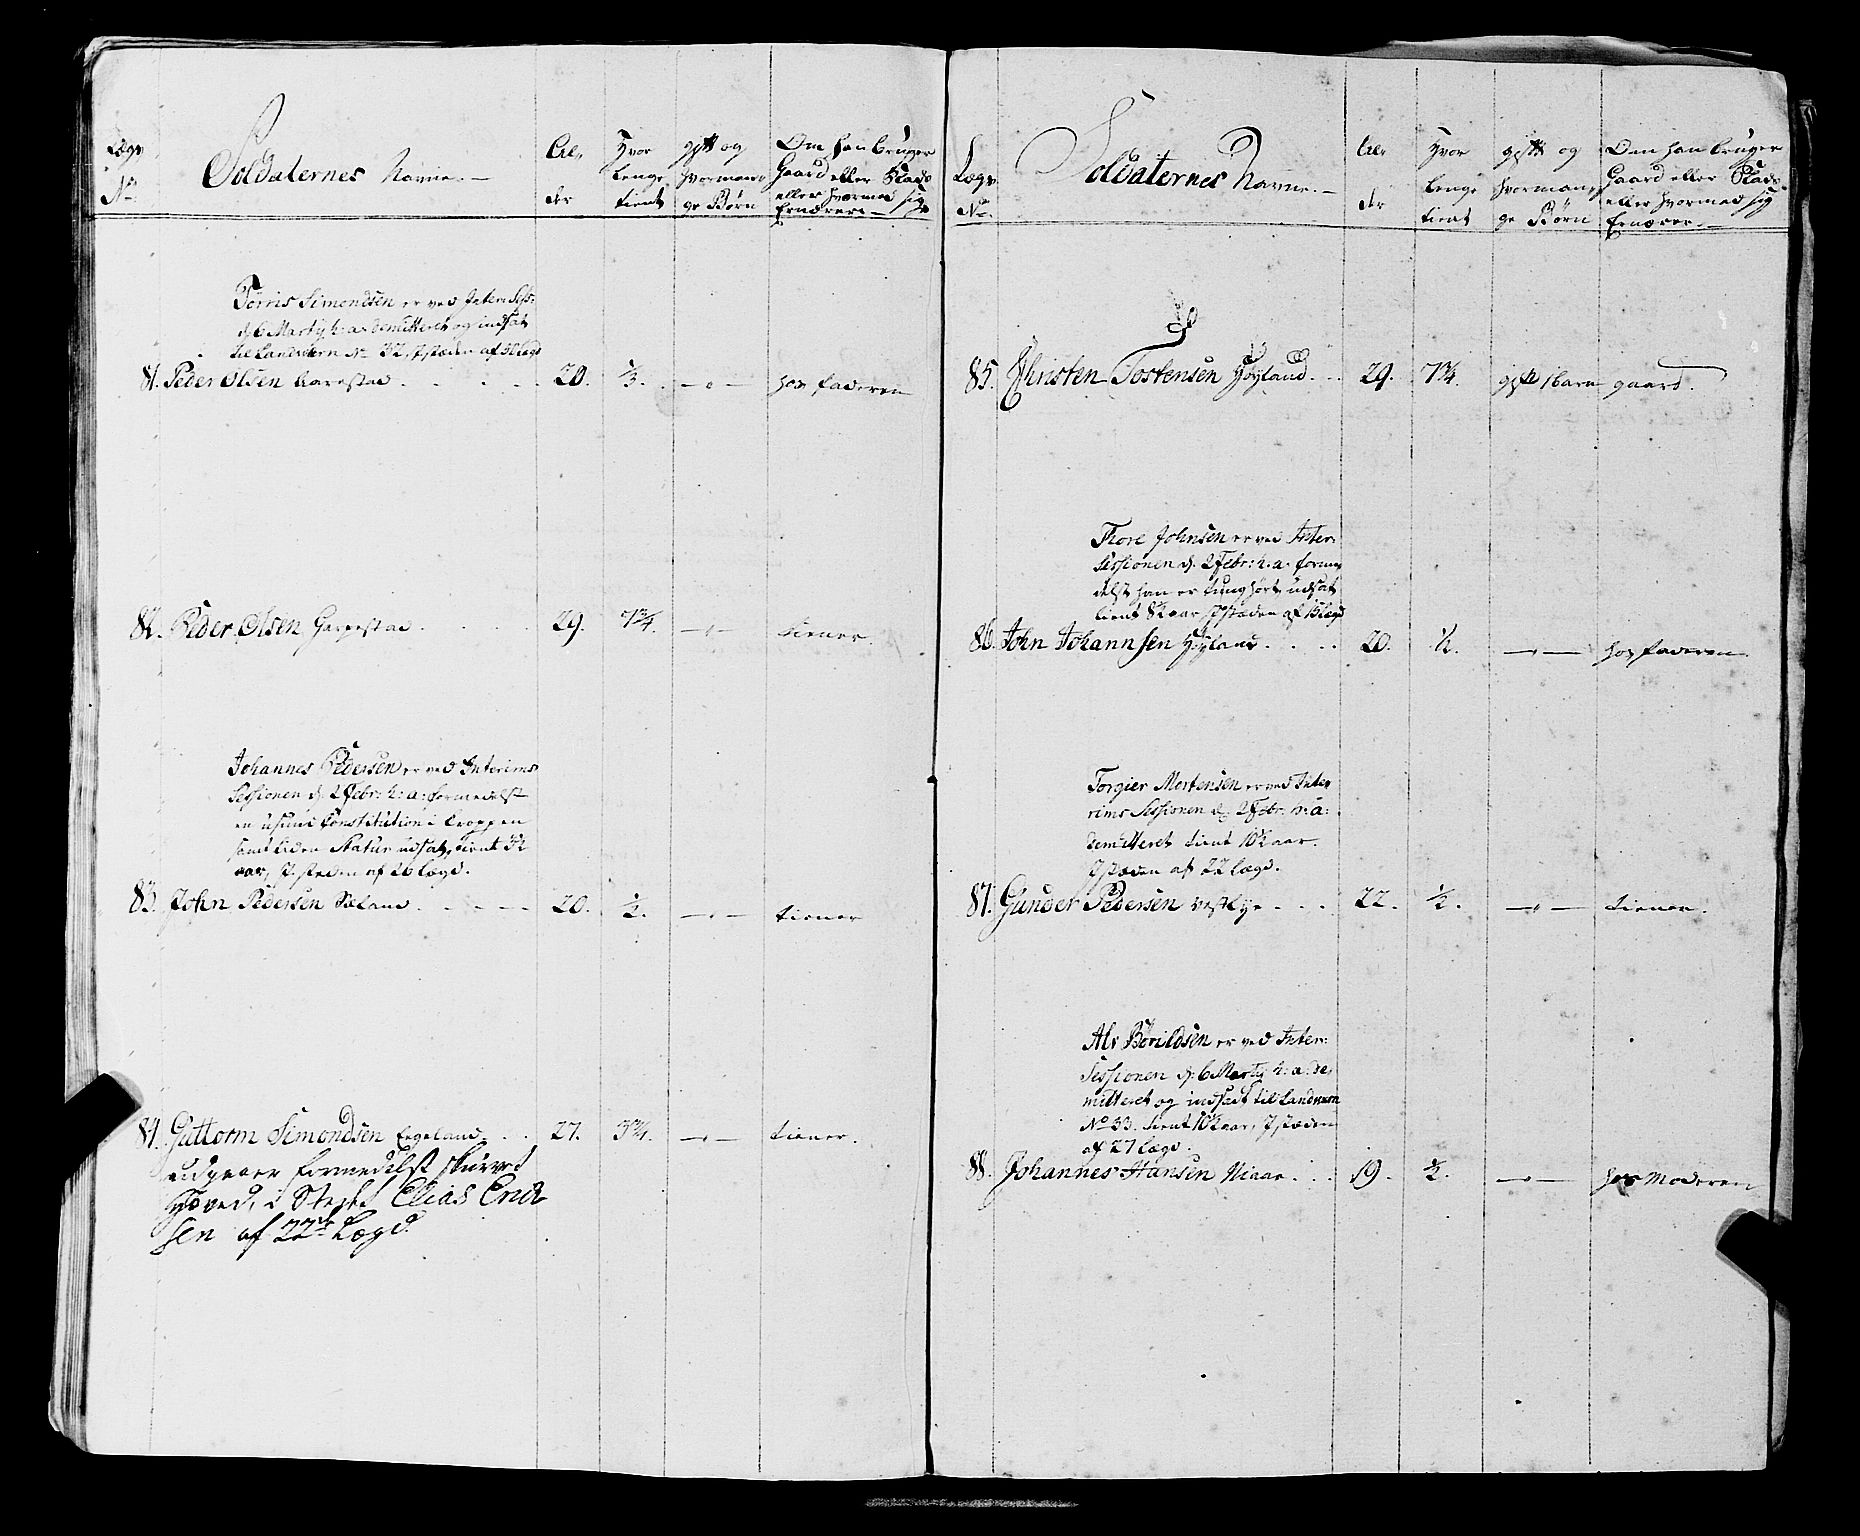 Lægs No. Soldaternes Navne. Al- der Hvor lenge tient gift og hvormange Børn Om han bruger Gaard eller Plads eller hvormed sig Ernærer
Tørris Simondsen er ved Interi: Sess:
d: 6 Marty h: a: demitteret og indsat
til Landværn No 32, I stæden af
81. Peder Olsen Aarestad 20. 1/3. hos faderen
82. Peder Olsen Garpestad 29. 7 3/4. tiener
Johannes Pedersen er ved Interims
Sessionen d: 2 Febr: h: a: formedelst
en usund Constitution i Kroppen
samt liden Statur udsat, tient 3 1/2
aar, I steden af 26 Lægd.
83. John Pedersen Sæland 20. 1/2. tiener
84. Guttorm Simondsen Eegeland 27. 3 3/4. tiener.
udgaaer formedelst skurvet
Hoved, i Stedet Elias Erick
sen af 22de Lægd
Lægs No. Soldaternes Navne. Al- der Hvor lenge tient gift og hvorman- ge Børn Om han bruger Gaard eller Plads eller hvormed sig Ernærer
85. Christen Tostensen Høyland 29. 7 3/4. gift 1 barn gaard.
Thore Johnsen er ved Inter:
Sessionen d: 2 Febr: h. a: forme
delst han er tunghørt udsat
tient 8 1/2 aar, I stæden af Lægd
86. John Johannsen Høyland 20. 1/2. hos faderen
Torgier Mortensen er ved Inte
rims Sessionen d: 2 Febr. h: a:
demitteret tient 10 1/2 aar.
I stæden af 22 Lægd.
87. Gunder Pedersen Vestlye 22. 1/2. tiener.
Alv Børildsen er ved Inter:
Sessionen d: 6 Marty h: a: de
mitteret og indsadt til Landværn
No 33. tient 10 1/2 aar, I stæden
af 27 Lægd.
88. Johannes Hansen Niaae 19. 1/2. hos Moderen